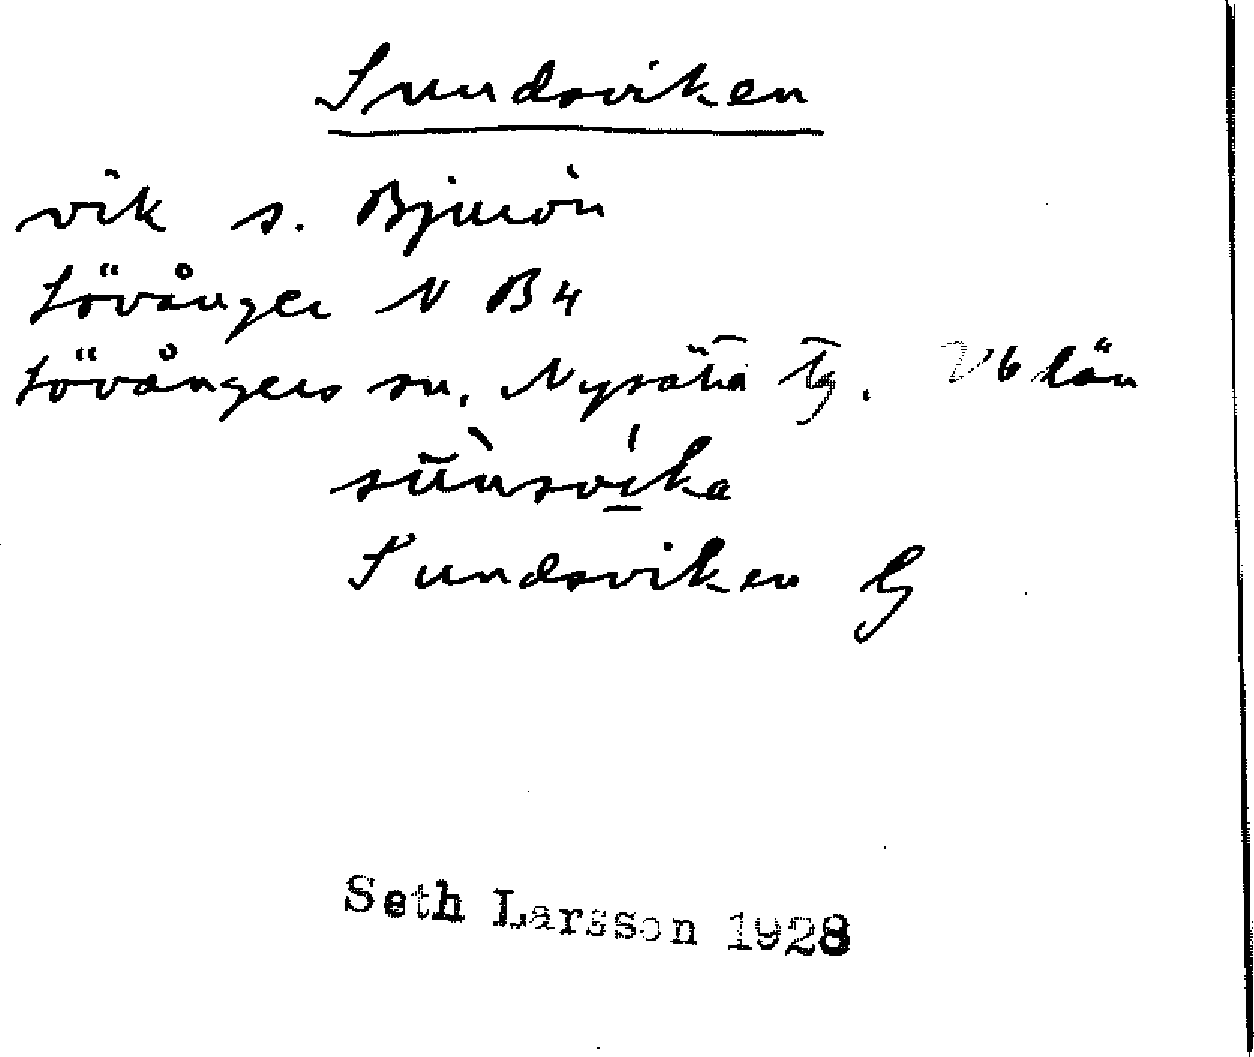 Sundsviken
vik s. Bjurön
Lövånger N B4
Lövångers sn. Nysätra tg. Vb län
sū̀nsví̲ka
Sundsviken G
Seth Larsson 1928